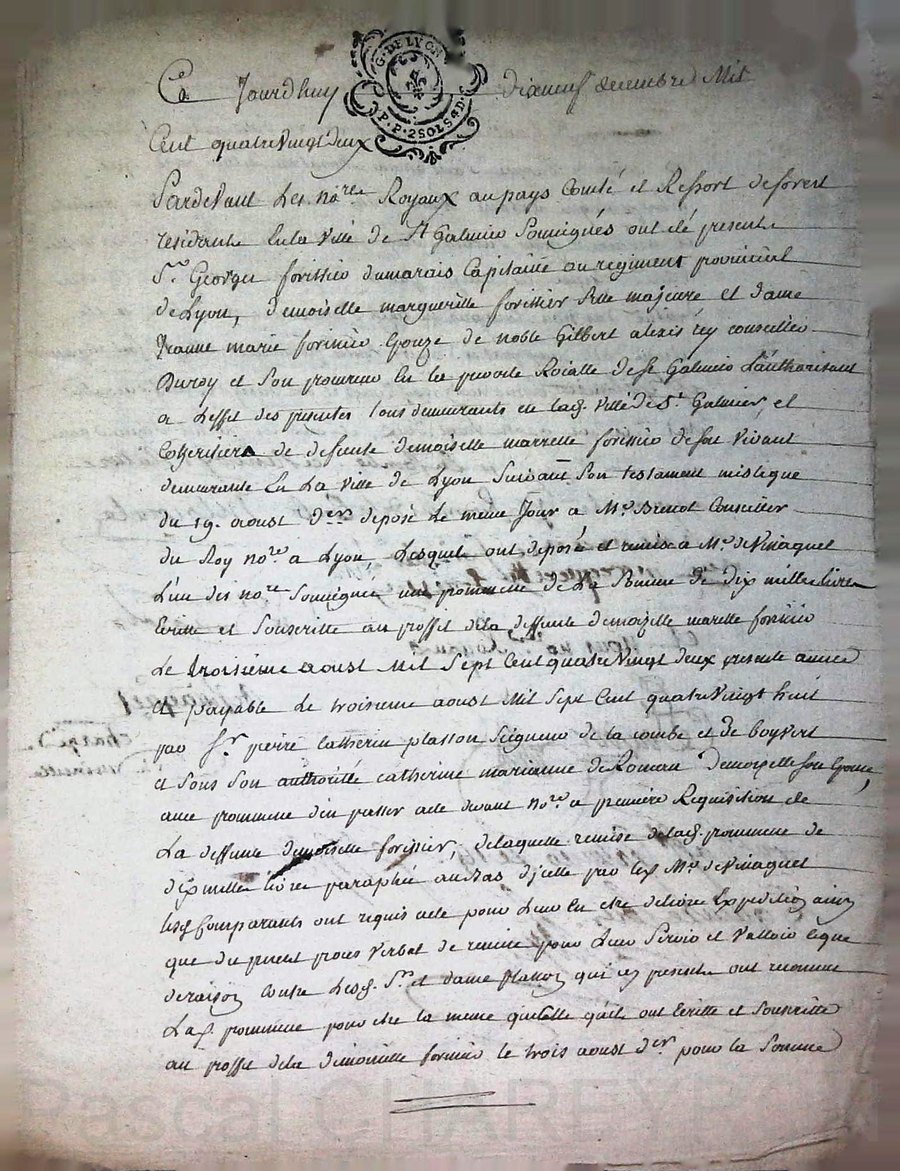 G. DE LYON
P. P. 2 SOLS 4 D.
Ce Jourdhuy dixneuf decembre Mil
Cent quatre vingt deux
Pardevant Les no.res Royaux au pays Comté et Ressort de forest
residants En la ville de St Galmier Soussignés ont été presents
S.r George forissier dumarais Capitaine au regiment provincial
de Lyon, demoiselle margueritte forissier fille majeure et dame
Jeanne marie forissier Epouze de noble Gilbert alexis conseiller
Du roy et Son procureur En la prevoté Roialle de St Galmier L'authorisant
a L'effet des presentes tous demeurants en lad. ville de St Galmier, et
Coheritiers de defunte demoiselle marrette forissier de son vivant
demeurante En La ville de Lyon Suivant Son testament mistique
du 19. aoust d.er deposé Le meme Jour a M.e Conseiller
du Roy no.re a Lyon, Lesquels ont deposé et remis a M.e deVinaquet
L'un des no.res Soussignés une promesse de La Somme de dix mille livres
Ecritte et Souscritte au proffit de la deffunte demoizelle marette forissier
Le troisieme aoust Mil Sept Cent quatre Vingt deux presente année
et payable Le troisieme aoust Mil Sept Cent quatre Vingt huit
par S.r pierre Catherin plasson Seigneur de la combe et de boyvert
et Sous Son authorité catherine marianne de Roman Demoizelle Son Epouse,
avec promesse d'en passer acte devant no.re a premiere Requisition de
La deffunte demoiselle forissier, de laquelle remise de lad. promesse de
dix mille livres paraphée au bas d'jcelle par led. M.e deVinaquet
lesd. Comparants ont requis acte pour Leur En etre delivré Expedition ainsy
que du present proces verbal de remise pour Leur Servir et Valloir ce que
de raison Contre Lesd. S.r et dame plasson qui ces presentes ont reconnu
Lad. promesse pour etre la meme que Celle qu'ils ont Ecritte et Souscritte
au proffit de la demoiselle forissier le trois aoust d.er pour la Somme
Pascal CHAREYRON